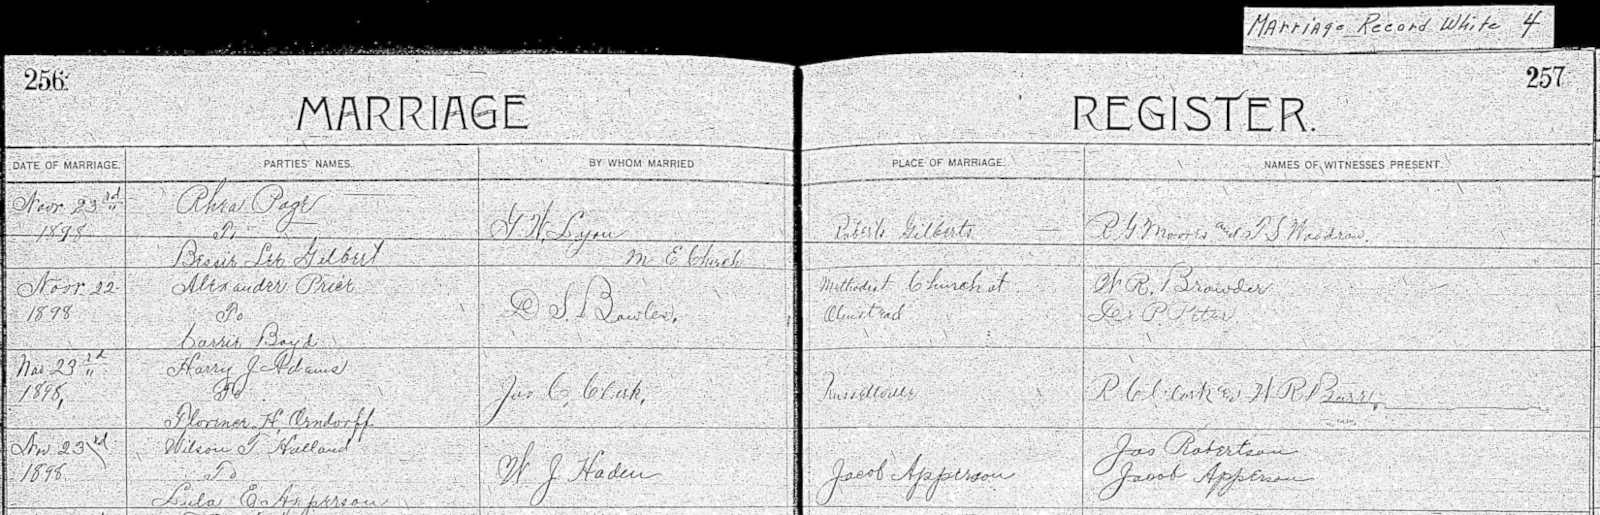 Marriage Record White 4
256
257
MARRIAGE
REGISTER.
DATE OF MARRIAGE.
PARTIES' NAMES.
BY WHOM MARRIED
PLACE OF MARRIAGE.
NAMES OF WITNESSES PRESENT.
Nov 23rd
1898
Rhea Page
To
Bessie Lee Gilbert
G. W. Lyon
M E Church
Roberts Gilberts
R G Moore and T S Woodrow.
Nov 22
1898
Alexander Price
To
Carrie Boyd
D S. Bowles.
Methodist Church at
Olmstead
W. R. Browder
Dr P.
Nov 23rd
1898,
Harry J Adams
To
Florence H. Orndorff
Jas C. Clark,
Russellville
R C W R
Nov 23rd
1898
Wilson T Holland
To
Lula E. Apperson
W J Haden
Jacob Apperson
Jas Robertson
Jacob Apperson